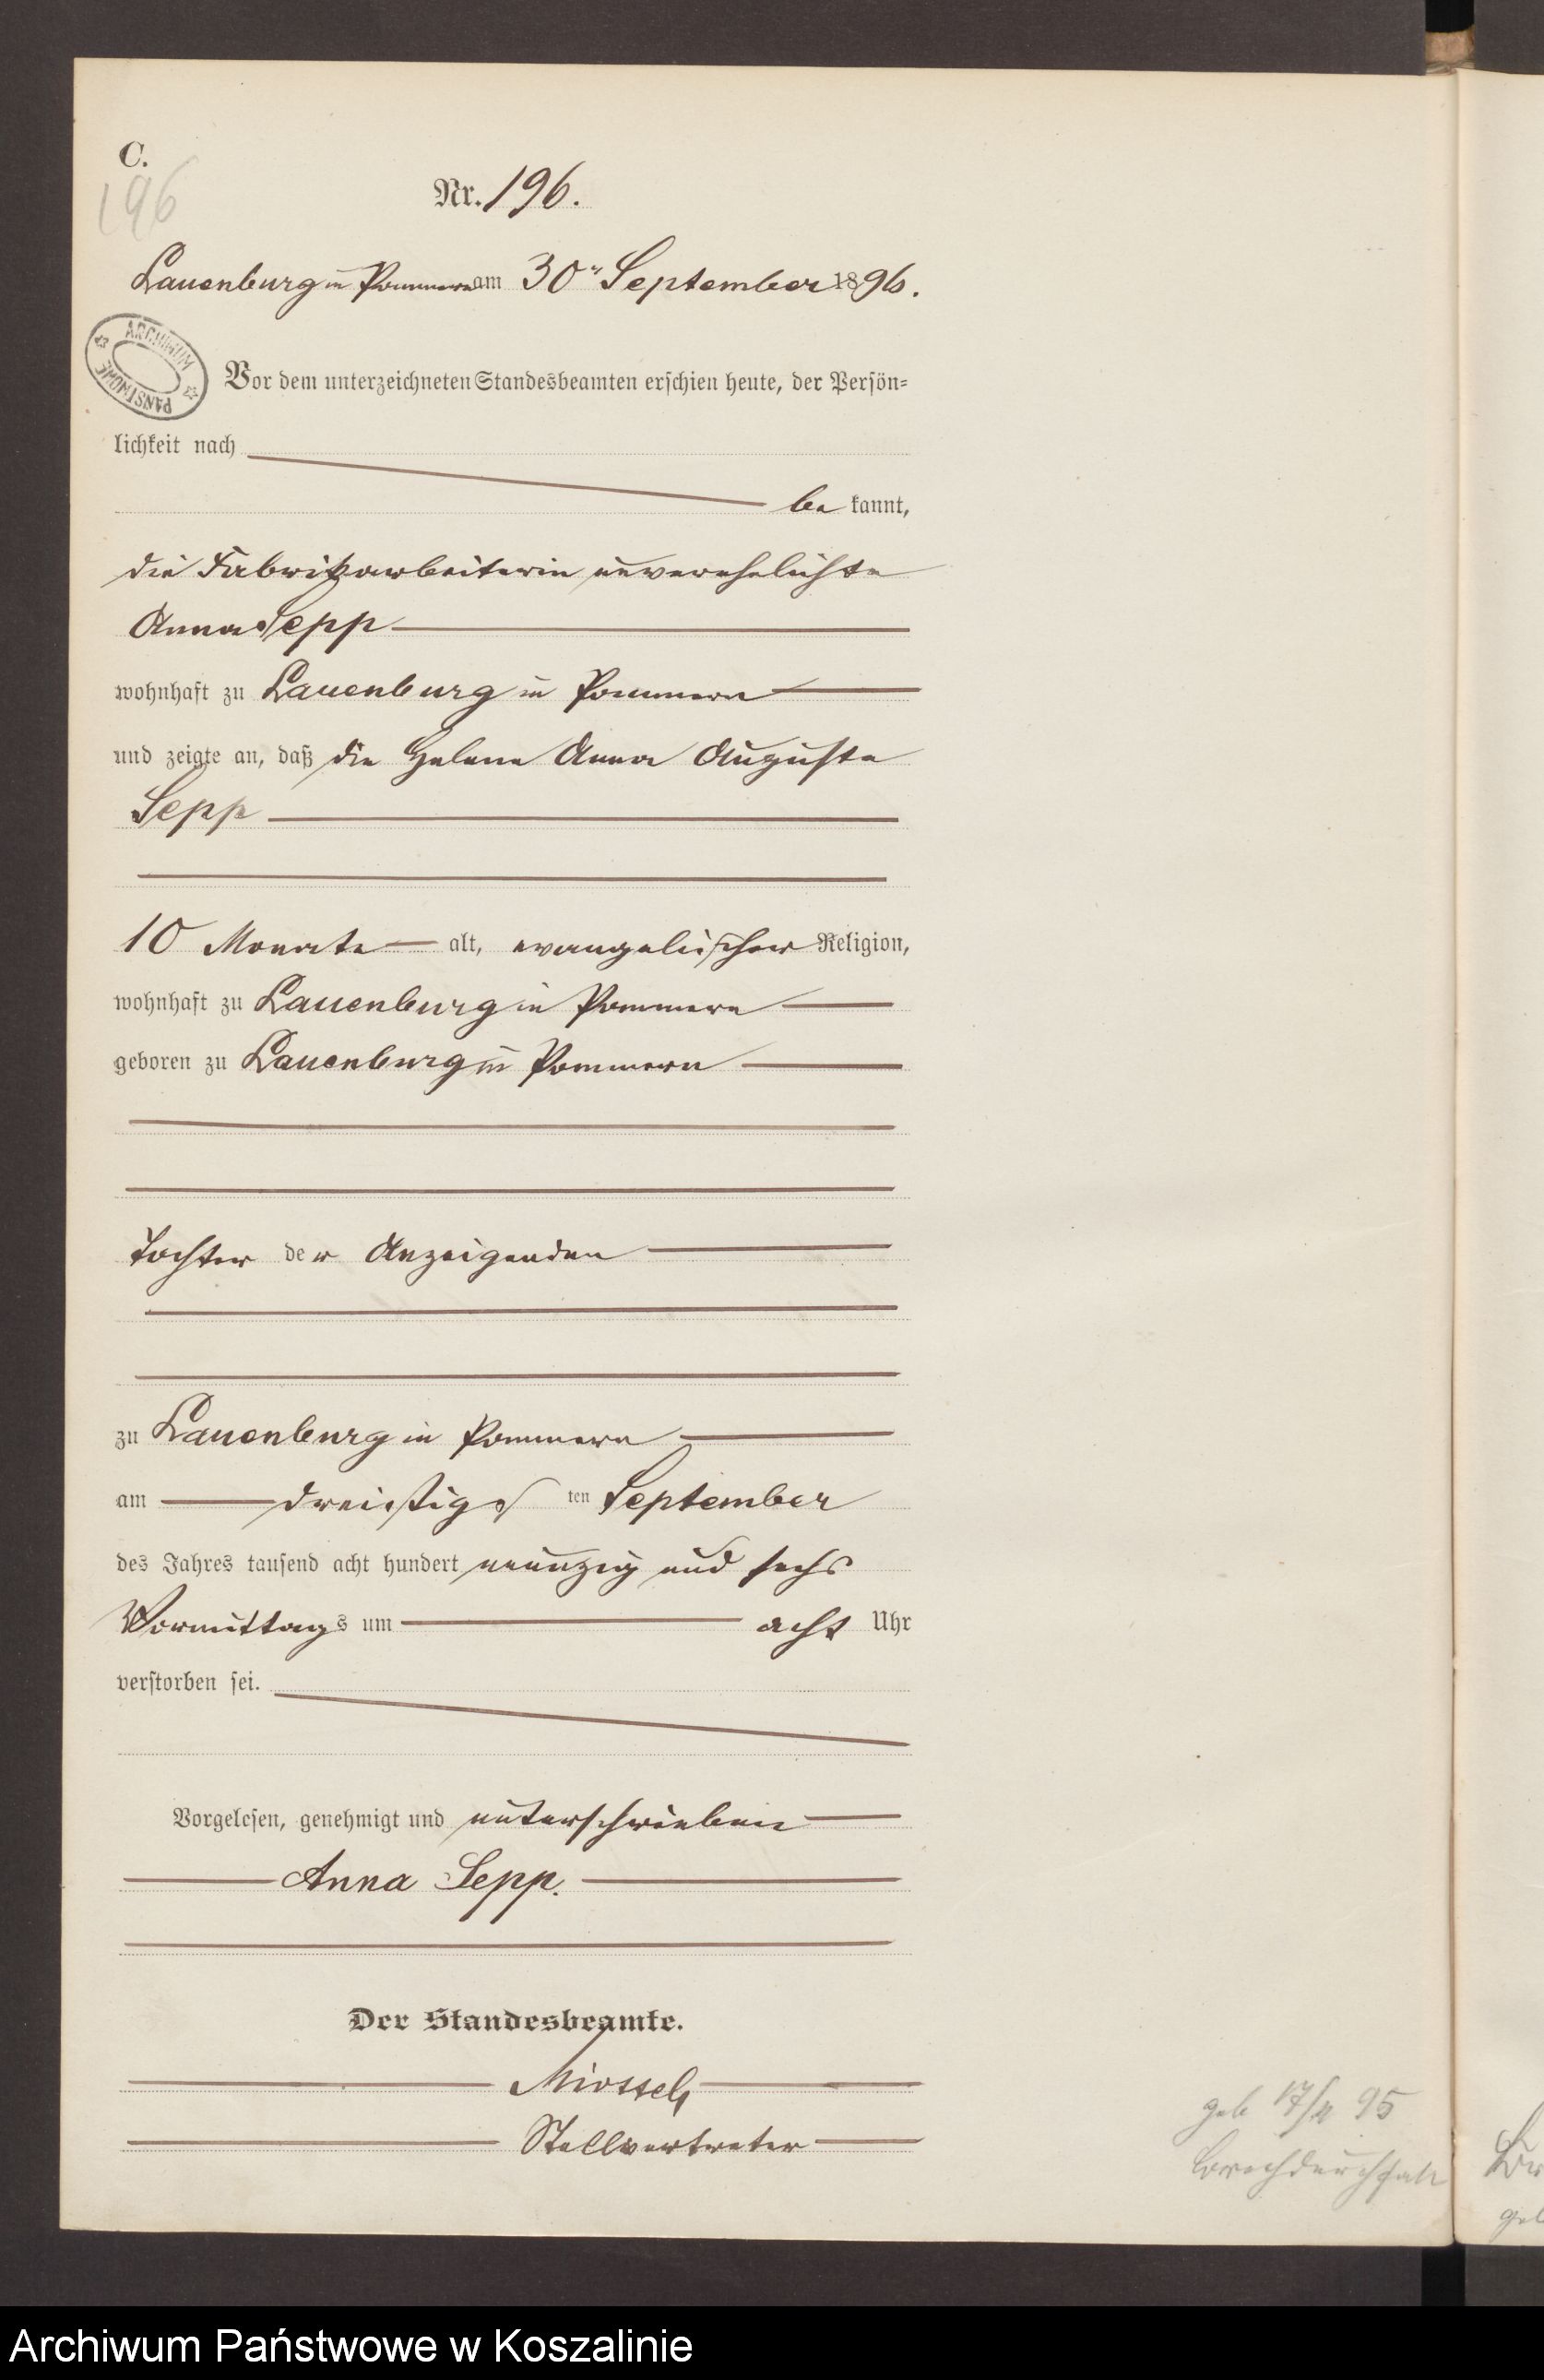 C.
196
Nr. 196.
Lauenburg in Pommern am 30ten September 1896.
ARCHIWUM PAŃSTWOWE
Vor dem unterzeichneten Standesbeamten erschien heute, der Persön=
lichkeit nach
be kannt,
die Fabrikarbeiterin unverehelichte
Anna Sepp
wohnhaft zu Lauenburg in Pommern
und zeigte an, daß die Helene Anna Auguste
Sepp
10 Monate alt, evangelischer Religion,
wohnhaft zu Lauenburg in Pommern
geboren zu Lauenburg in Pommern
Tochter der Anzeigenden
zu Lauenburg in Pommern
am dreißigsten September
des Jahres tausend acht hundert neunzig und sechs
Vormittags um acht Uhr
verstorben sei.
Vorgelesen, genehmigt und unterschrieben
Anna Sepp.
Der Standesbeamte.
Stellvertreter
geb 17/11 95
Brechdurchfall
Archiwum Państwowe w Koszalinie